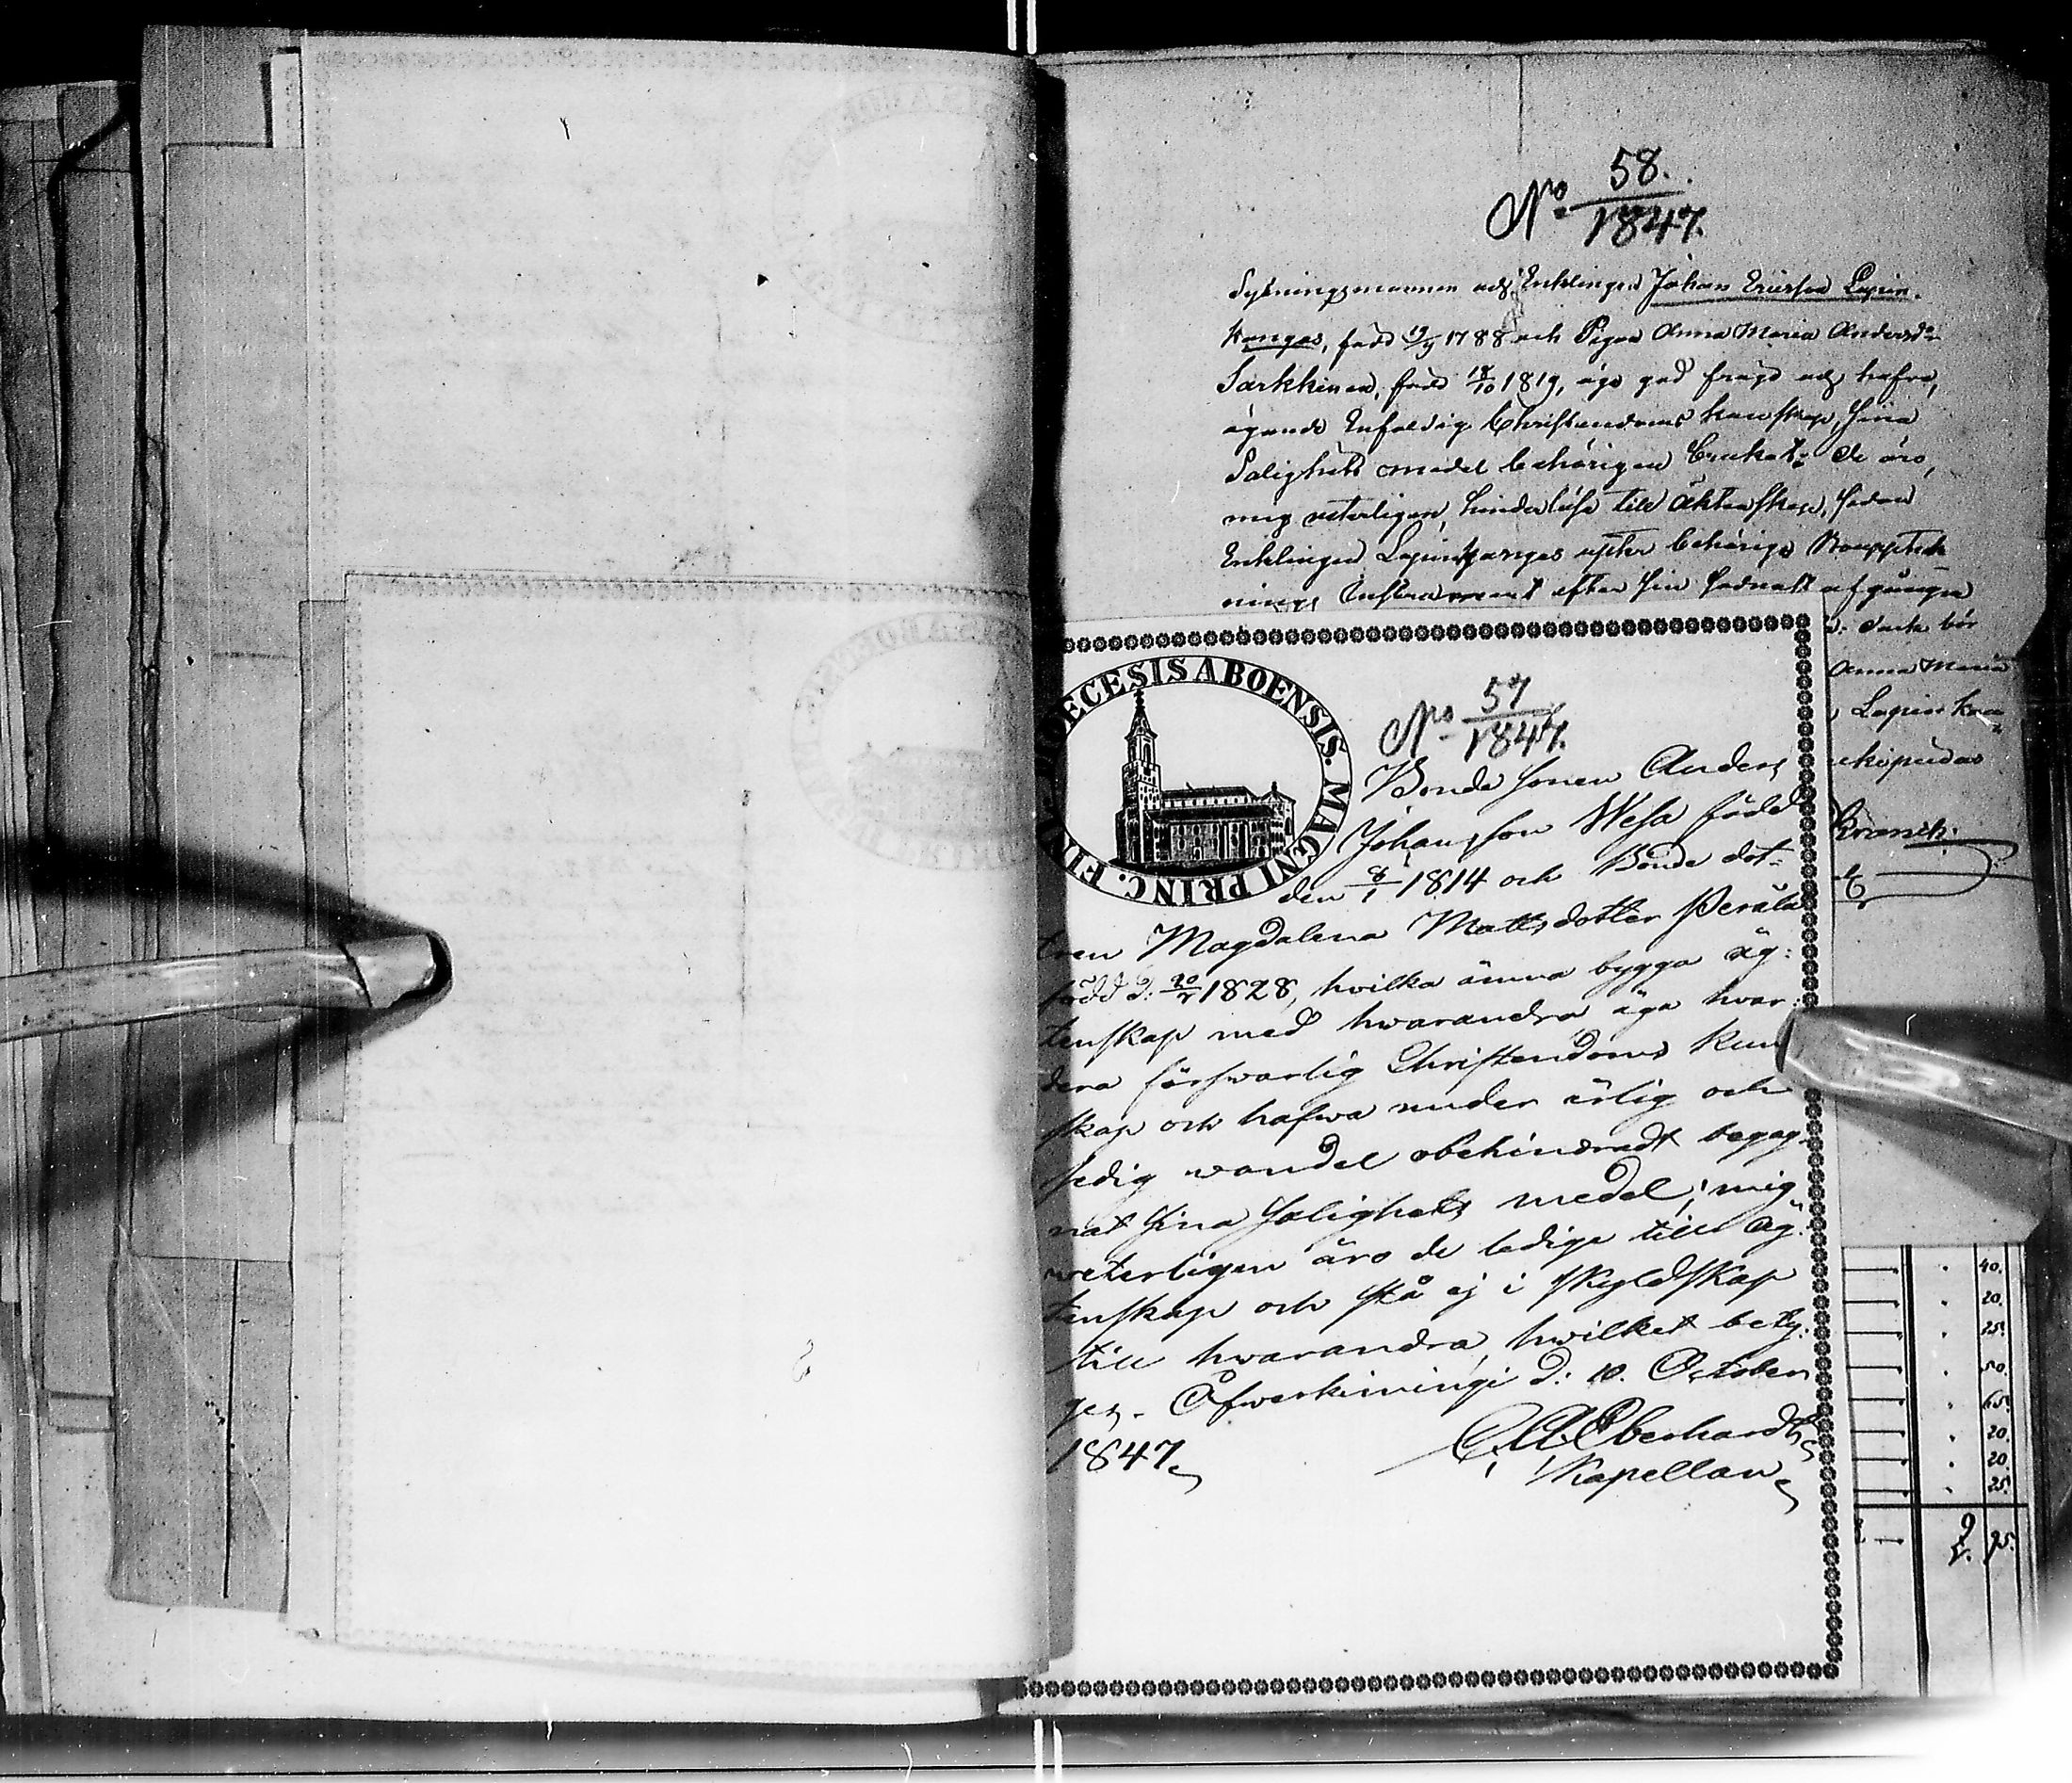 No 58.
1847.
Sytningsmannen och Enklingen Johan Ericsson Lapin-
kangas, född 19/9 1788 och Pigan Anna Maria Andersdr
Sarkkinen, född 18/10 1819, äga god frägd och hafva,
ägande Enfaldig Christendoms kunskap, sina
Salighets medel behörigen brukat; De äro,
mig veterligen, hinderlösa till äktenskap, sedan
Enklingen Lapinkangas upter behörigt Bouppteck
nings Instrument efter sin sednast afgångna
dock bör
Anna Maria
Lapinkan
Kranck.
DIOECESIS ABOENSIS. MAGNI PRINC. FINL.
No 57
1847.
Bonde sonen Anders
Johansson Wesa född
den 8/1 1814 och Bonde dot-
tren Magdalena Mattsdotter Perälä
född d: 20/7 1828, hvilka ämna bygga äg:
tenskap med hwarandra äga hvar:
dera förswarlig Christendoms kun
skap och hafwa under ärlig och
sedig wandel obehindradt begag-
nat sina salighets medel; mig
weterligen äro de lediga till äg:
tenskap och stå ej i skyldskap
till hwarandra, hwilket bety:
ges. Öfwerkiminge d: 10. October
1847.
C. A. Eberhardt
Kapellan
40.
20.
25.
50.
65.
20.
20.
25.
2. 75.